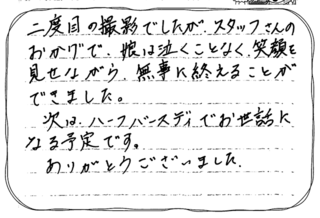 二度目の撮影でしたが、スタッフさんの
おかげで、娘は泣くことなく、笑顔を
見せながら、無事に終えることが
できました。
次は、ハーフバースディでお世話に
なる予定です。
ありがとうございました。